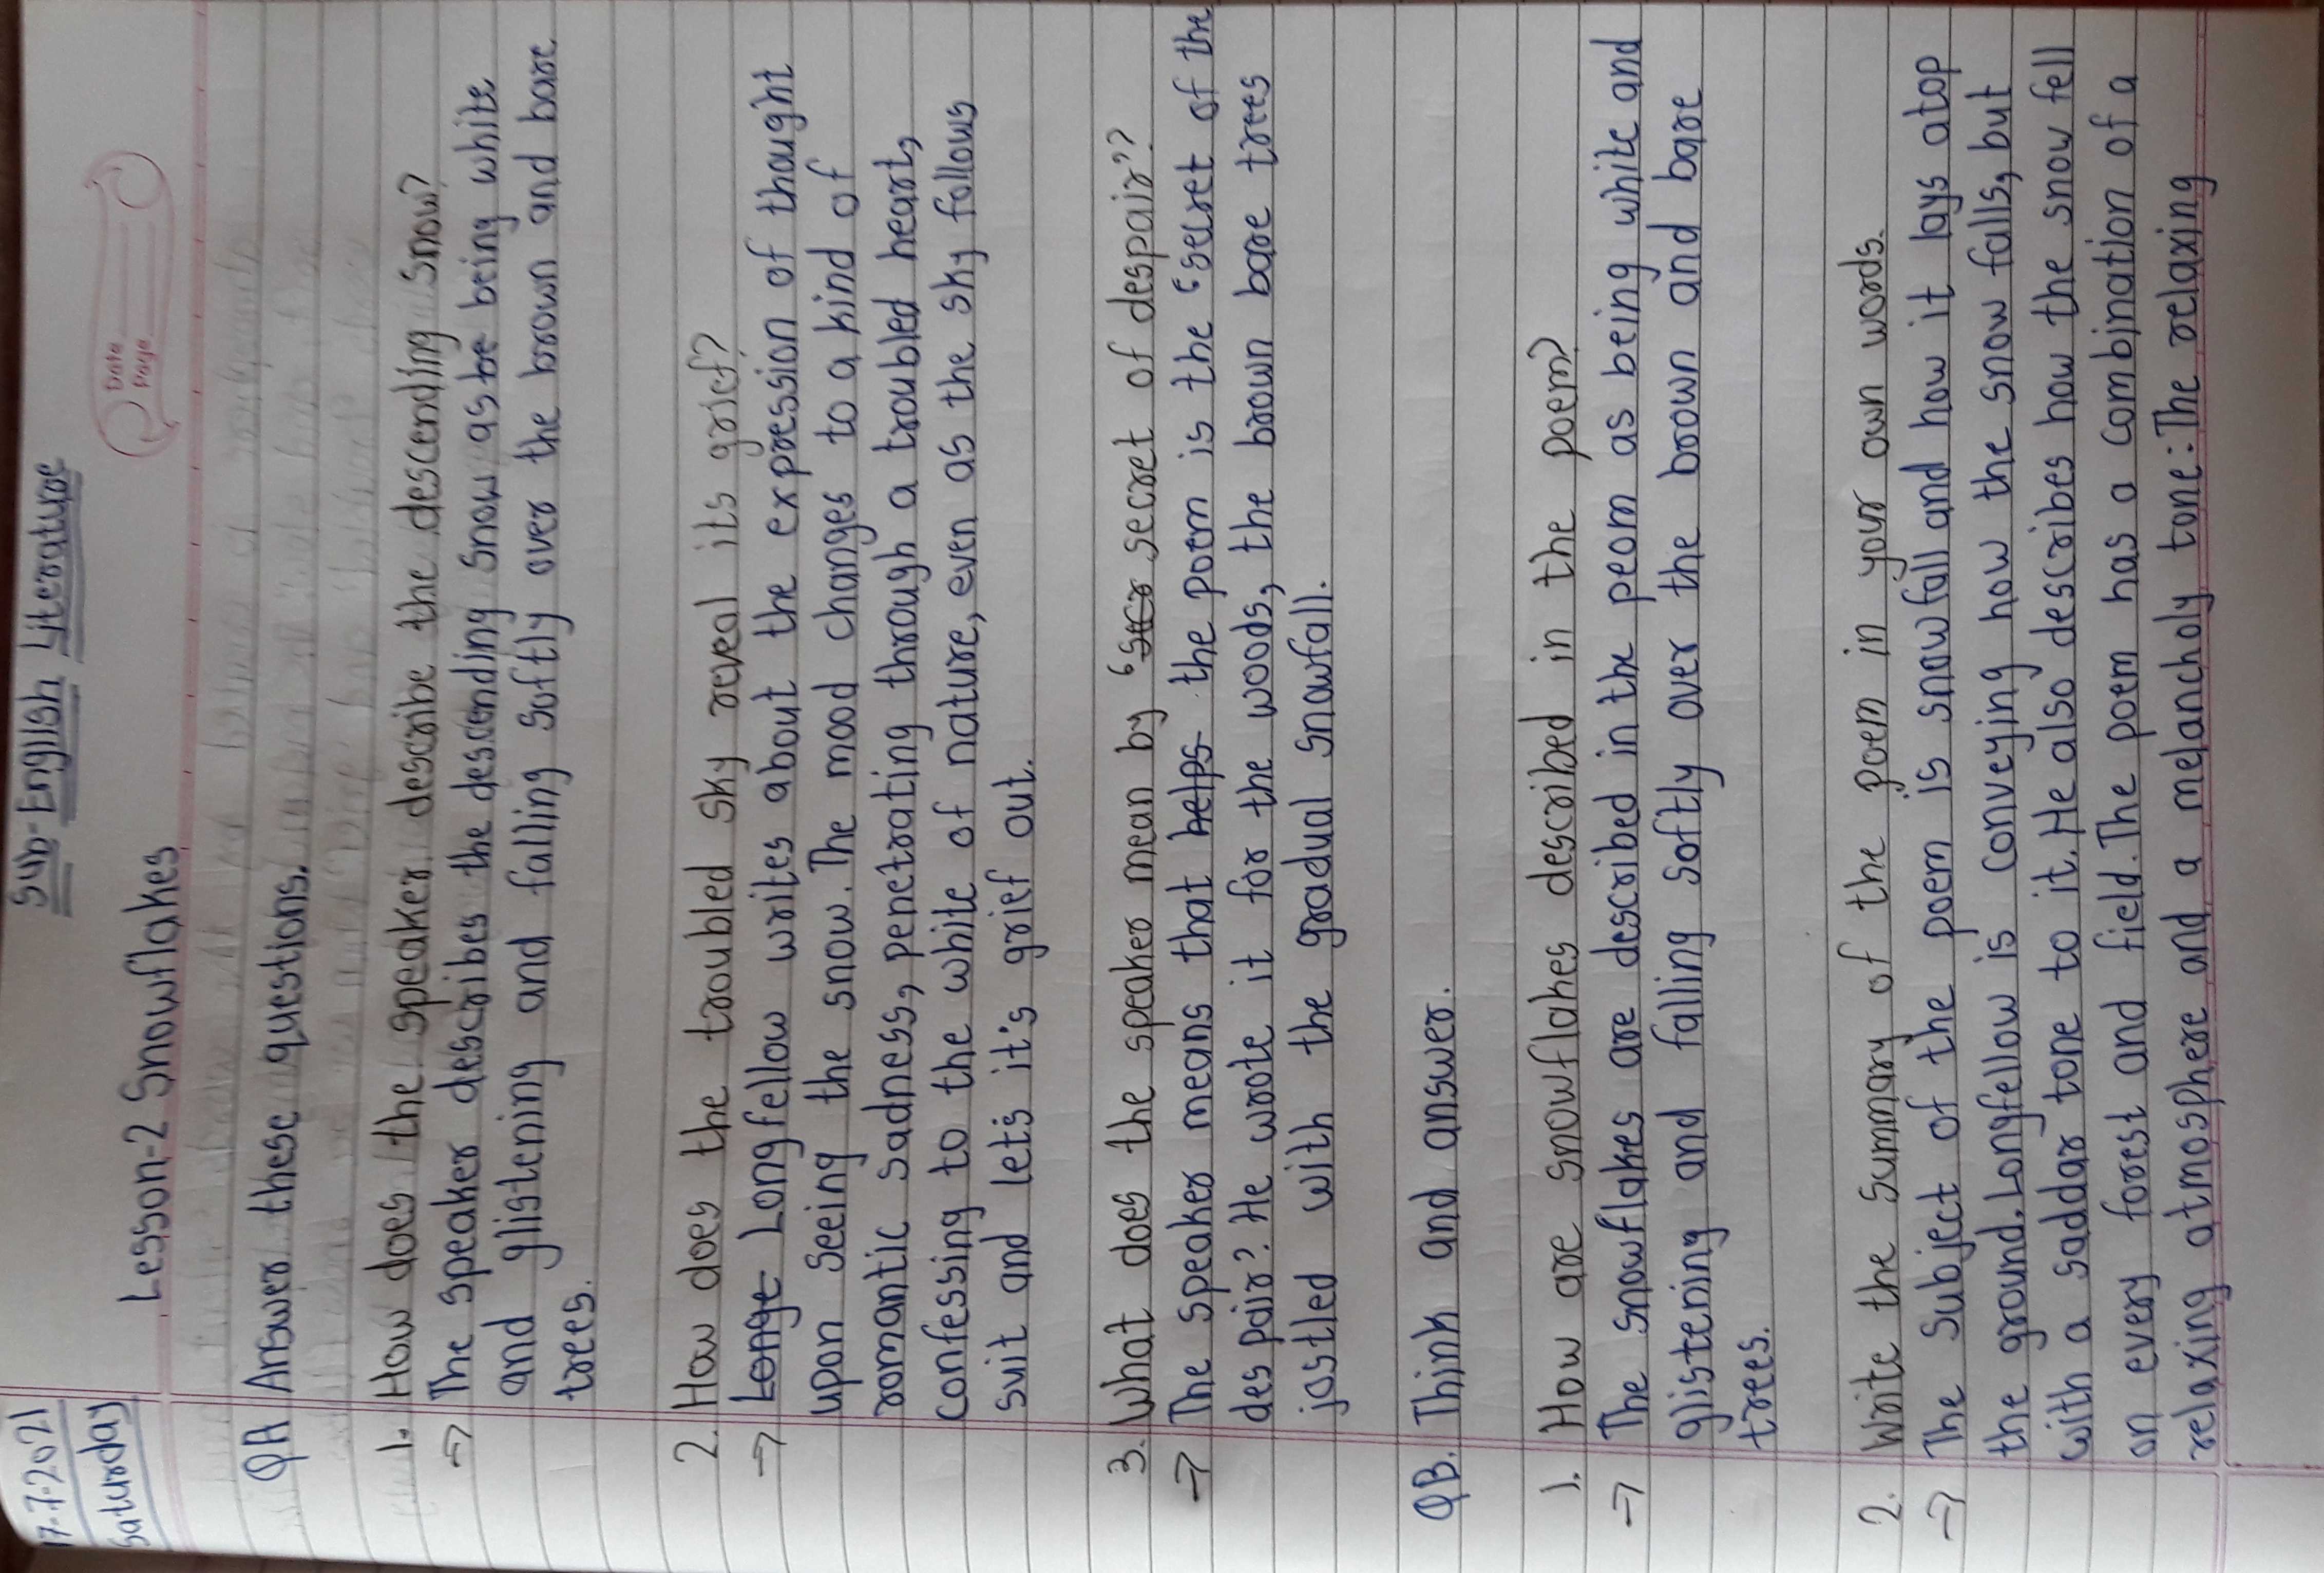 17-7-2021
Saturday
Sub-English Literature
Date
Page
Lesson-2 Snowflakes
QA Answer these questions.
1. How does the speaker describe the descending snow?
→ The speaker describes the descending snow as be being white
and glistening and falling softly over the brown and bare
trees.
2. How does the troubled sky reveal its grief?
→ Longe Longfellow writes about the expression of thought
upon seeing the snow. The mood changes to a kind of
romantic sadness, penetrating through a troubled heart,
confessing to the white of nature, even as the sky follows
suit and lets it's grief out.
3. What does the speaker mean by "secr secret of despair"?
→ The speaker means that helps the poem is the "secret of the
despair? He wrote it for the woods, the brown bare trees
jostled with the gradual snowfall.
QB. Think and answer.
1. How are snowflakes described in the poem?
→ The snowflakes are described in the peom as being white and
glistening and falling softly over the brown and bare
trees.
2. Write the summary of the poem in your own words.
→ The subject of the poem is snowfall and how it lays atop
the ground. Longfellow is conveying how the snow falls, but
with a saddar tone to it. He also describes how the snow fell
on every forest and field. The poem has a combination of a
relaxing atmosphere and a melancholy tone: The relaxing